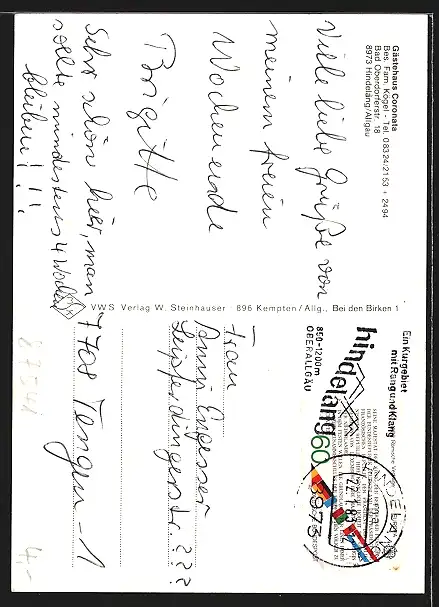 Gästehaus Coronata
Bes. Fam. Kögel - Tel. 08324/2153 + 2494
Bad Oberdorferstr. 18
8973 Hindelang/Allgäu
Viele liebe Grüße von
meinem freien
Wochenende
Brigitte
Sehr schön hier, man
sollte mindestens 4 Wochen
bleiben!!!
VWS Verlag W. Steinhauser · 896 Kempten/Allg., Bei den Birken 1
Ein Kurgebiet
mit Rang und Klang
hindelang
850-1200m
OBERALLGÄU
60
8973
HINDELANG
22.-1.83
Frau
Engesser
Leipferdingerstr. ???
7708 Tengen-1
4,-